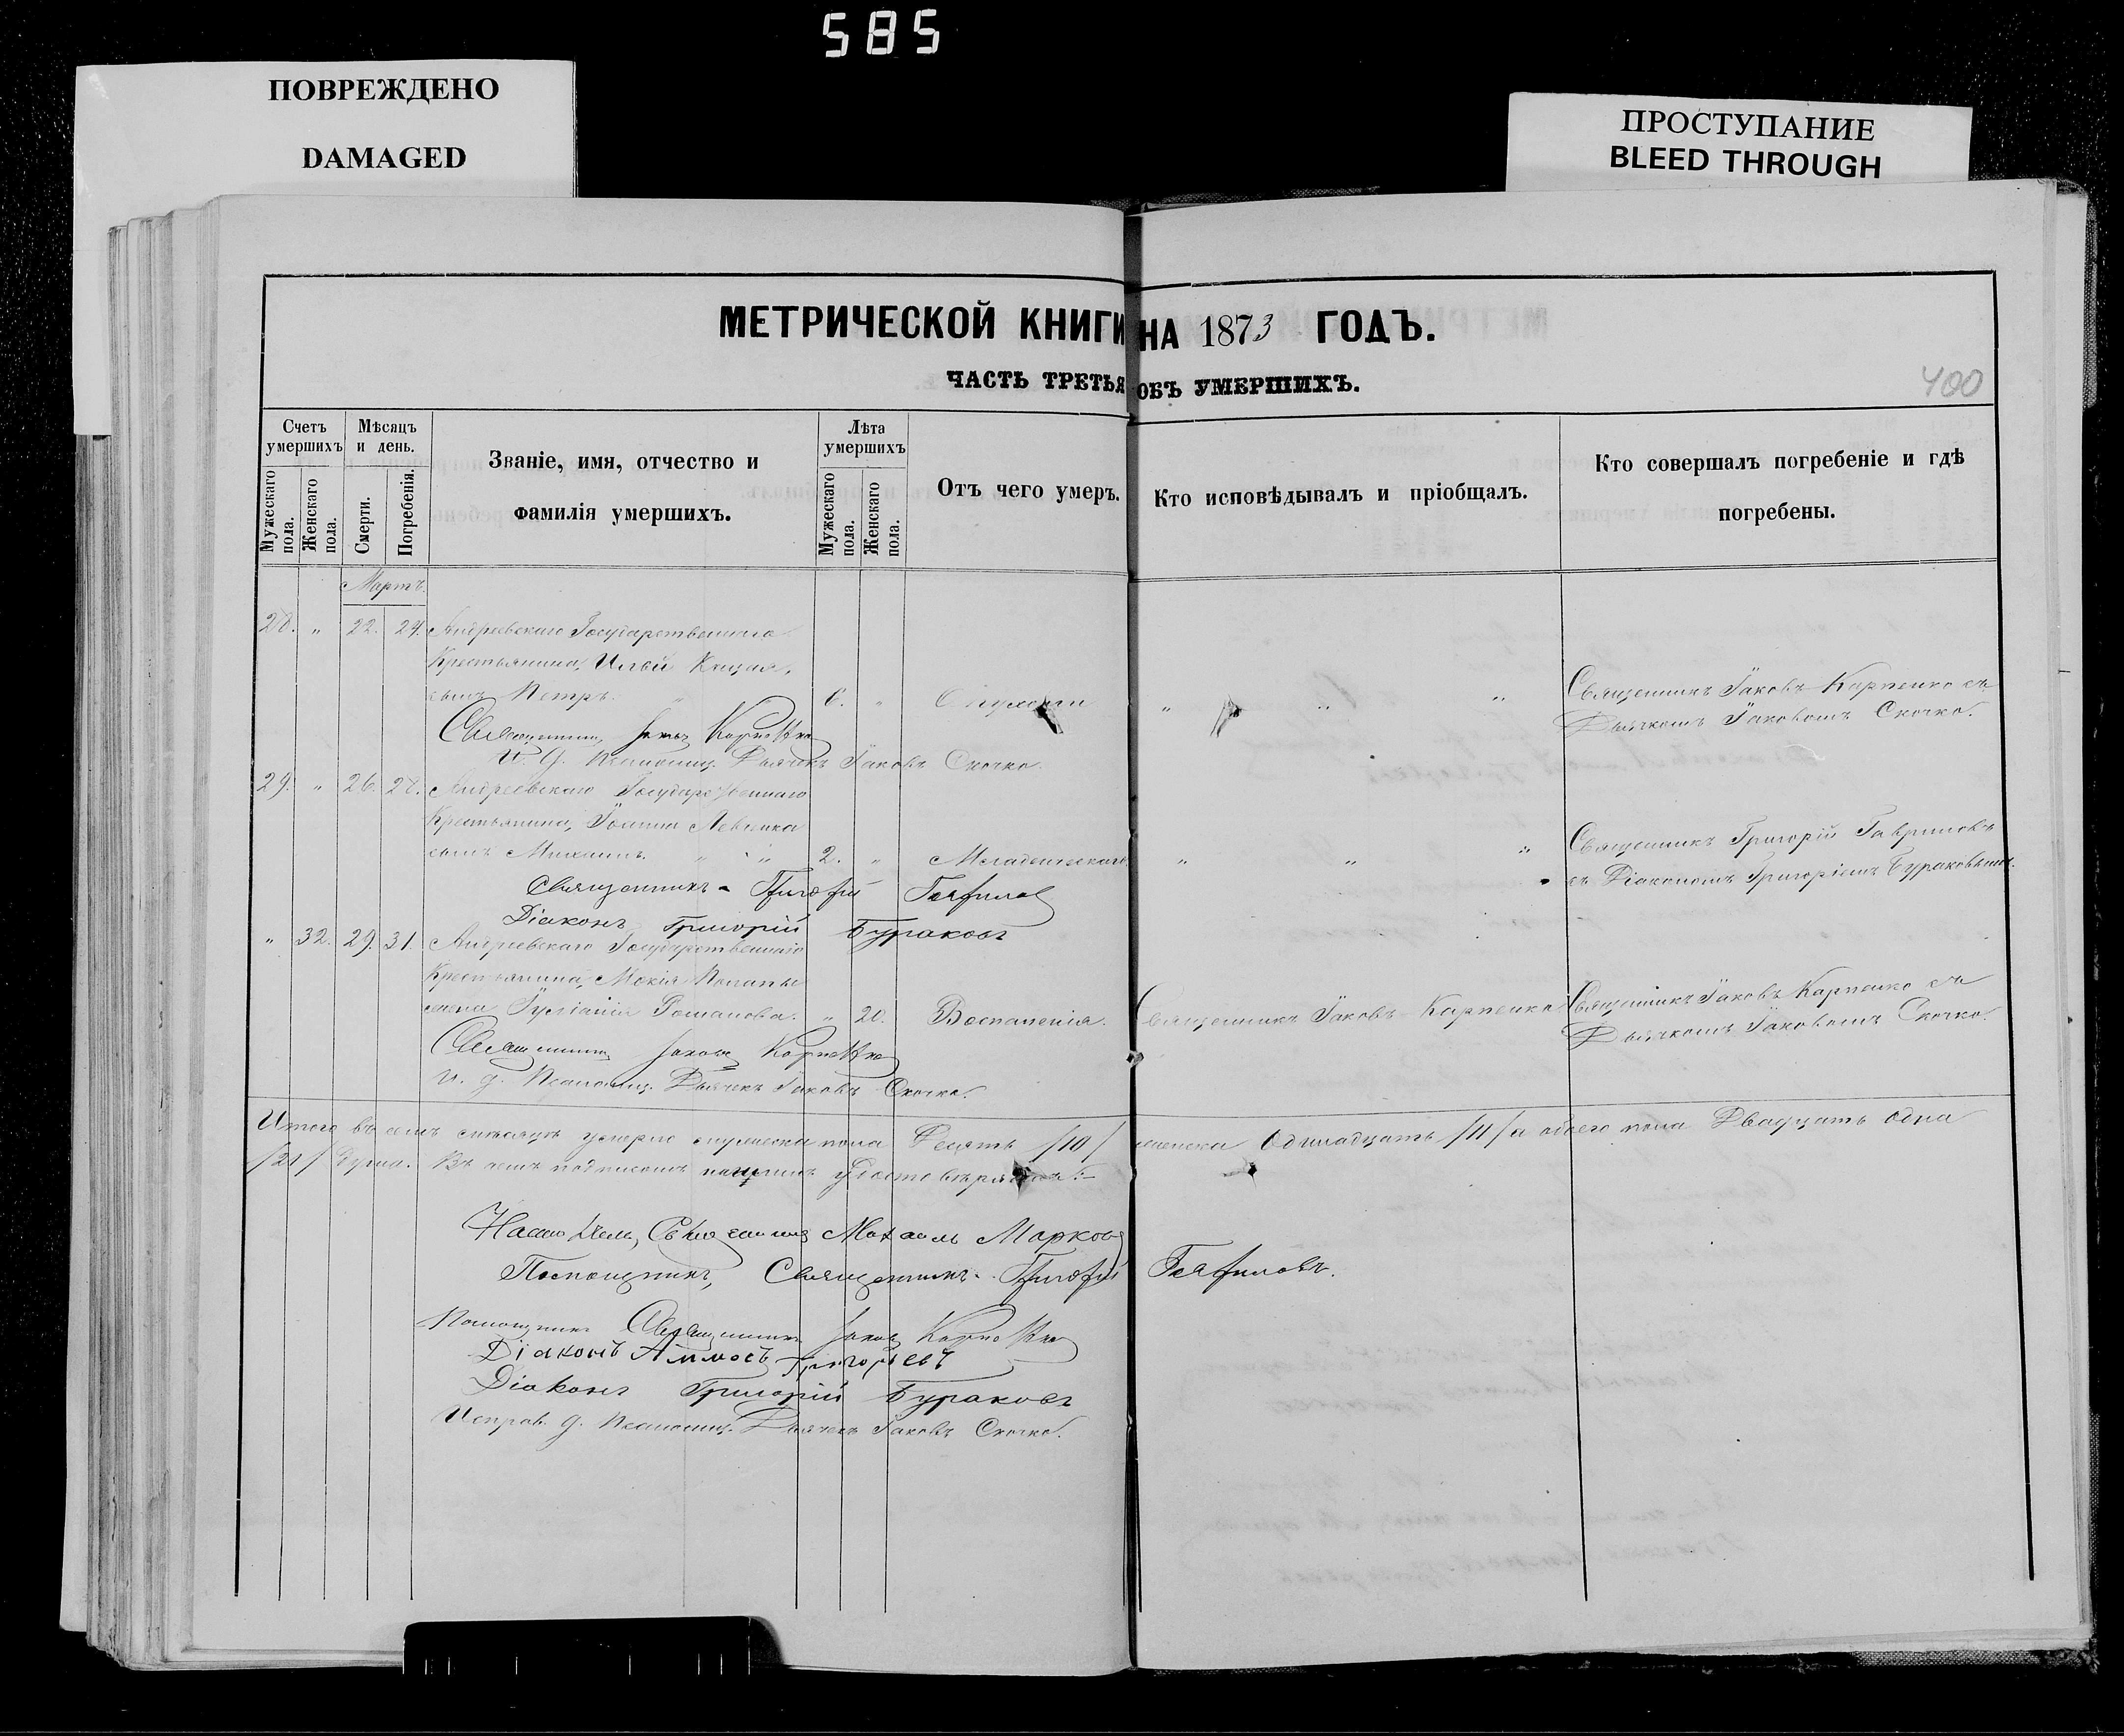 585
ПОВРЕЖДЕНО
DAMAGED
ПРОСТУПАНИЕ
BLEED THROUGH
МЕТРИЧЕСКОЙ КНИГИ НА 1873 ГОДЪ.
ЧАСТЬ ТРЕТЬЯ ОБЪ УМЕРШИХЪ.
400
Счетъ умершихъ
Мужескаго пола.
Женскаго пола.
Мѣсяцъ и день.
Смерти.
Погребенія.
Званіе, имя, отчество и
фамилія умершихъ.
Лѣта умершихъ
Мужескаго пола.
Женскаго пола.
Отъ чего умеръ.
Кто исповѣдывалъ и пріобщалъ.
Кто совершалъ погребеніе и гдѣ
погребены.
Мартъ.
28. " 22. 24. Андреевскаго Государственнаго
Крестьянина,
сынъ Петръ. 6. " " " " Священникъ Іаковъ Карпенко съ
Дьячкомъ Іаковомъ Скочко.
Священникъ Іаковъ Карпенко
И. д. Псаломщ. Дьячекъ Іаковъ Скочко.
29. " 26. 28. Андреевскаго Государственнаго
Крестьянина, Іоанна Левченка
сынъ Михаилъ. " " 2. " Младенческаго " " " Священникъ Григорій Гавриловъ
съ Діакономъ Григоріемъ Бураковымъ.
Священникъ Григорій Гавриловъ
Діаконъ Григорій Бураковъ
" 32. 29. 31. Андреевскаго Государственнаго
Крестьянина, Мокія
жена Романова. " 20. Воспаленія. Священникъ Іаковъ Карпенко Священникъ Іаковъ Карпенко съ
Дьячкомъ Іаковомъ Скочко.
Священникъ Іаковъ Карпенко
И. д. Псаломщ. Дьячекъ Іаковъ Скочко.
Итого въ семъ мѣсяцѣ умерло мужеска пола Десять /10/ женска Одинадцать /11/ а обоего пола Двадцать одна
/21/ душа. Въ чемъ подписомъ нашимъ удостовѣряемъ:
Настоятель, Священникъ Михаилъ Марковъ
Помощникъ, Священникъ Григорій Гавриловъ.
Помощникъ Священникъ Іаковъ Карпенко
Діаконъ Аммосъ Григорьевъ
Діаконъ Григорій Бураковъ
Исправ. д. Псаломщ. Дьячекъ Іаковъ Скочко.